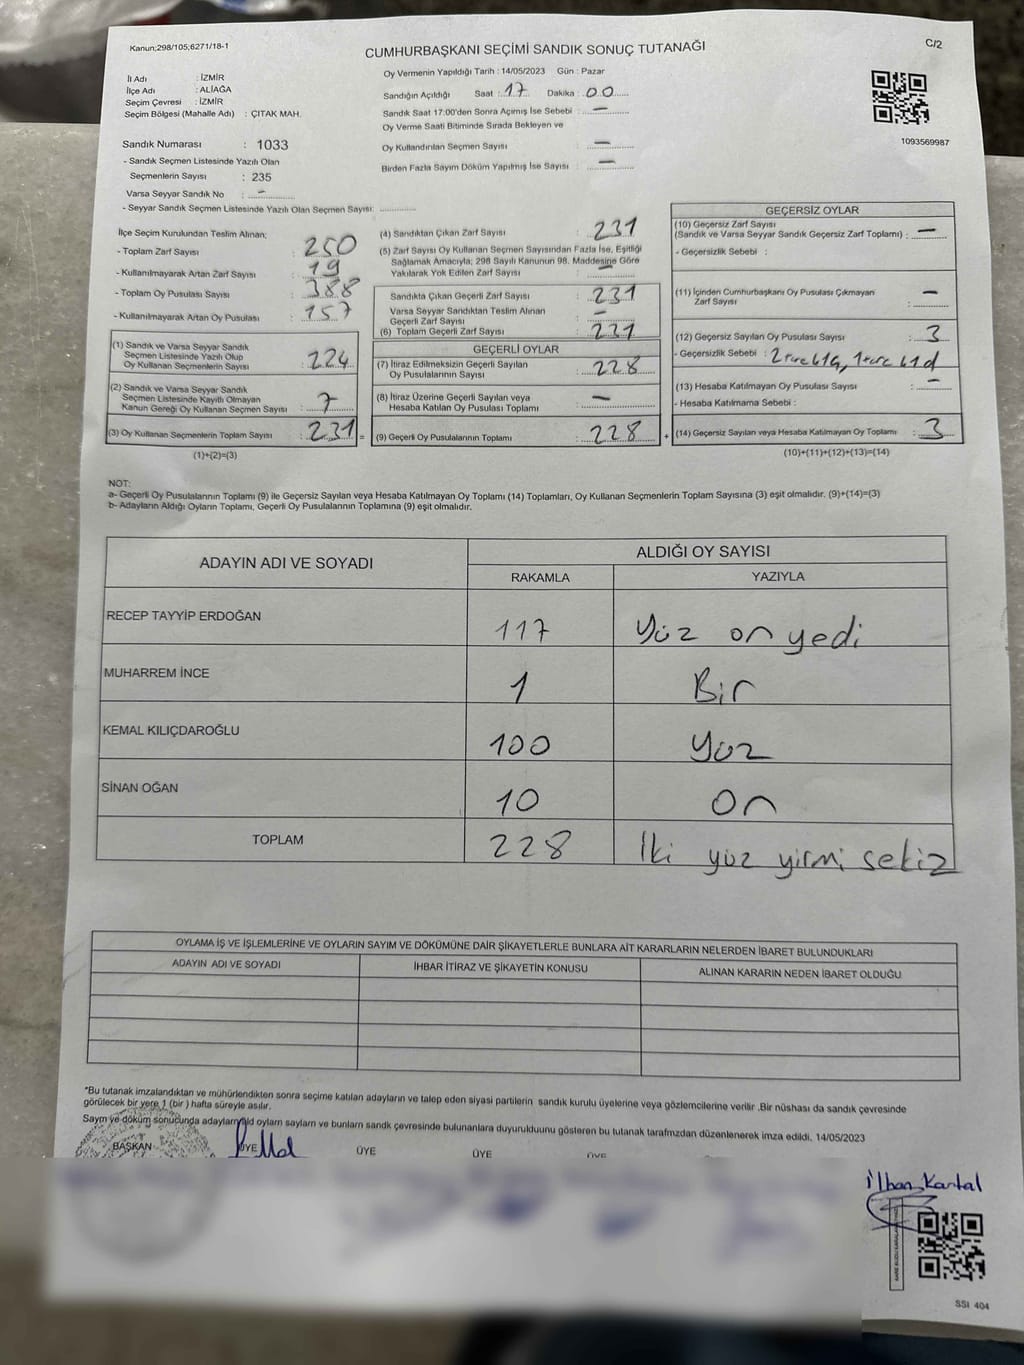 Kanun;298/105;6271/18-1
CUMHURBAŞKANI SEÇİMİ SANDIK SONUÇ TUTANAĞI
C/2
İl Adı : İZMİR
İlçe Adı : ALİAĞA
Seçim Çevresi : İZMİR
Seçim Bölgesi (Mahalle Adı) : ÇITAK MAH.
Oy Vermenin Yapıldığı Tarih : 14/05/2023 Gün : Pazar
Sandığın Açıldığı Saat : 17 Dakika : 00
Sandık Saat 17:00'den Sonra Açımış İse Sebebi : —
Oy Verme Saati Bitiminde Sırada Bekleyen ve
Oy Kullandırılan Seçmen Sayısı : —
Birden Fazla Sayım Döküm Yapılmış İse Sayısı : —
1093569987
Sandık Numarası : 1033
- Sandık Seçmen Listesinde Yazılı Olan
Seçmenlerin Sayısı : 235
Varsa Seyyar Sandık No : -
- Seyyar Sandık Seçmen Listesinde Yazılı Olan Seçmen Sayısı:
İlçe Seçim Kurulundan Teslim Alınan;
- Toplam Zarf Sayısı : 250
- Kullanılmayarak Artan Zarf Sayısı : 19
- Toplam Oy Pusulası Sayısı : 388
- Kullanılmayarak Artan Oy Pusulası : 157
(1) Sandık ve Varsa Seyyar Sandık
Seçmen Listesinde Yazılı Olup
Oy Kullanan Seçmenlerin Sayısı : 224
(2) Sandık ve Varsa Seyyar Sandık
Seçmen Listesinde Kayıtlı Olmayan
Kanun Gereği Oy Kullanan Seçmen Sayısı : 7
(3) Oy Kullanan Seçmenlerin Toplam Sayısı : 231 =
(1)+(2)=(3)
(4) Sandıktan Çıkan Zarf Sayısı : 231
(5) Zarf Sayısı Oy Kullanan Seçmen Sayısından Fazla İse, Eşitliği
Sağlamak Amacıyla; 298 Sayılı Kanunun 98. Maddesine Göre
Yakılarak Yok Edilen Zarf Sayısı : —
Sandıkta Çıkan Geçerli Zarf Sayısı : 231
Varsa Seyyar Sandıktan Teslim Alınan
Geçerli Zarf Sayısı : —
(6) Toplam Geçerli Zarf Sayısı : 231
GEÇERLİ OYLAR
(7) İtiraz Edilmeksizin Geçerli Sayılan
Oy Pusulalarının Sayısı : 228
(8) İtiraz Üzerine Geçerli Sayılan veya
Hesaba Katılan Oy Pusulası Toplamı : —
(9) Geçerli Oy Pusulalarının Toplamı : 228 +
GEÇERSİZ OYLAR
(10) Geçersiz Zarf Sayısı
(Sandık ve Varsa Seyyar Sandık Geçersiz Zarf Toplamı) : —
- Geçersizlik Sebebi :
(11) İçinden Cumhurbaşkanı Oy Pusulası Çıkmayan
Zarf Sayısı : —
(12) Geçersiz Sayılan Oy Pusulası Sayısı : 3
- Geçersizlik Sebebi :
(13) Hesaba Katılmayan Oy Pusulası Sayısı : —
- Hesaba Katılmama Sebebi :
(14) Geçersiz Sayılan veya Hesaba Katılmayan Oy Toplamı : 3
(10)+(11)+(12)+(13)=(14)
NOT:
a- Geçerli Oy Pusulalarının Toplamı (9) ile Geçersiz Sayılan veya Hesaba Katılmayan Oy Toplamı (14) Toplamları, Oy Kullanan Seçmenlerin Toplam Sayısına (3) eşit olmalıdır. (9)+(14)=(3)
b- Adayların Aldığı Oyların Toplamı, Geçerli Oy Pusulalarının Toplamına (9) eşit olmalıdır.
ADAYIN ADI VE SOYADI
ALDIĞI OY SAYISI
RAKAMLA YAZIYLA
RECEP TAYYİP ERDOĞAN 117 Yüz on yedi
MUHARREM İNCE 1 Bir
KEMAL KILIÇDAROĞLU 100 Yüz
SİNAN OĞAN 10 On
TOPLAM 228 İki yüz yirmi sekiz
OYLAMA İŞ VE İŞLEMLERİNE VE OYLARIN SAYIM VE DÖKÜMÜNE DAİR ŞİKAYETLERLE BUNLARA AİT KARARLARIN NELERDEN İBARET BULUNDUKLARI
ADAYIN ADI VE SOYADI İHBAR İTİRAZ VE ŞİKAYETİN KONUSU ALINAN KARARIN NEDEN İBARET OLDUĞU
*Bu tutanak imzalandıktan ve mühürlendikten sonra seçime katılan adayların ve talep eden siyasi partilerin sandık kurulu üyelerine veya gözlemcilerine verilir .Bir nüshası da sandık çevresinde
görülecek bir yere 1 (bir ) hafta süreyle asılır.
Sayım ve döküm sonucunda adayların oyların sayıları ve bunların sandık çevresinde bulunanlara duyurulduunu gösteren bu tutanak tarafımızdan düzenlenerek imza edildi. 14/05/2023
BAŞKAN ÜYE ÜYE ÜYE ÜYE
İlhan Kartal
SSI 404